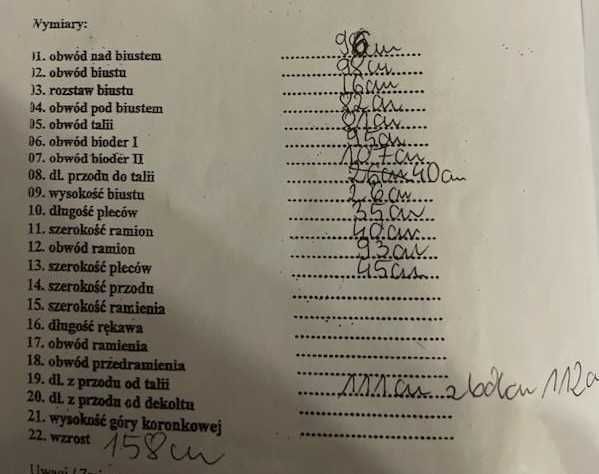 Wymiary:
01. obwód nad biustem 96cm
02. obwód biustu 98cm
03. rozstaw biustu 16cm
04. obwód pod biustem 82cm
05. obwód talii 81cm
06. obwód bioder I 95cm
07. obwód bioder II 107cm
08. dł. przodu do talii 40cm
09. wysokość biustu 26cm
10. długość pleców 35cm
11. szerokość ramion 40cm
12. obwód ramion 93cm
13. szerokość pleców 45cm
14. szerokość przodu
15. szerokość ramienia
16. długość rękawa
17. obwód ramienia
18. obwód przedramienia
19. dł. z przodu od talii 111cm z boku 112
20. dł. z przodu od dekoltu
21. wysokość góry koronkowej
22. wzrost 158cm